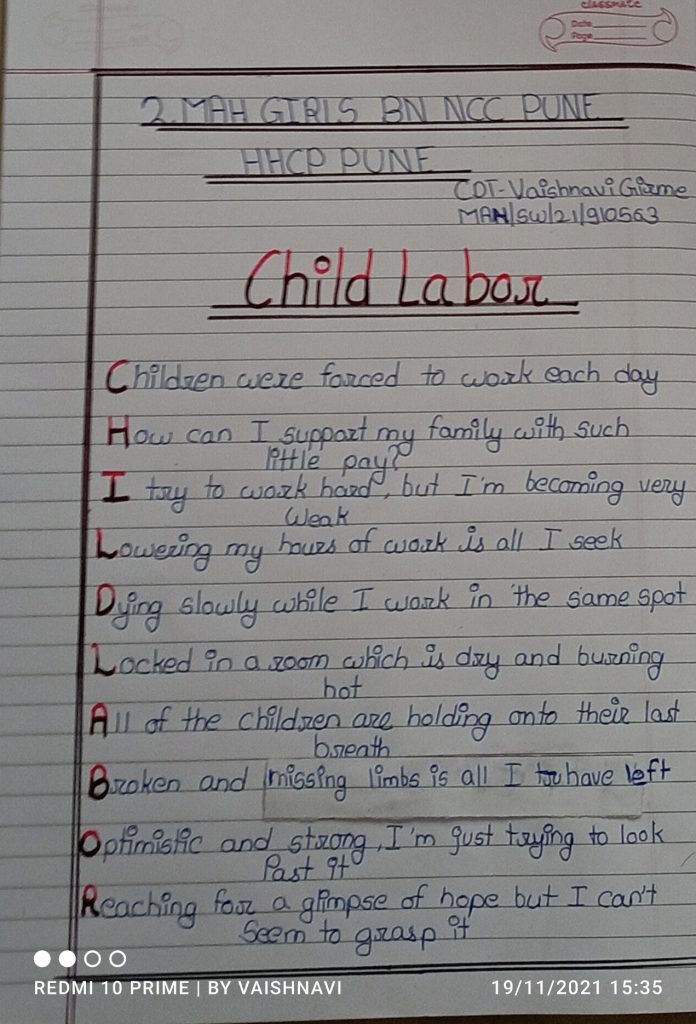 classmate
Date
Page
2 MAH GIRLS BN NCC PUNE
HHCP PUNE
CDT-Vaishnavi Girme
MAH/SW/21/910563
Child Labor
Children were forced to work each day
How can I support my family with such
little pay?
I try to work hard, but I'm becoming very
Weak
Lowering my hours of work is all I seek
Dying slowly while I work in the same spot
Locked in a room which is dry and burning
hot
All of the children are holding onto their last
breath
Broken and missing limbs is all I have left
Optimistic and strong, I'm just trying to look
Past it
Reaching for a glimpse of hope but I can't
Seem to grasp it
REDMI 10 PRIME | BY VAISHNAVI
19/11/2021 15:35